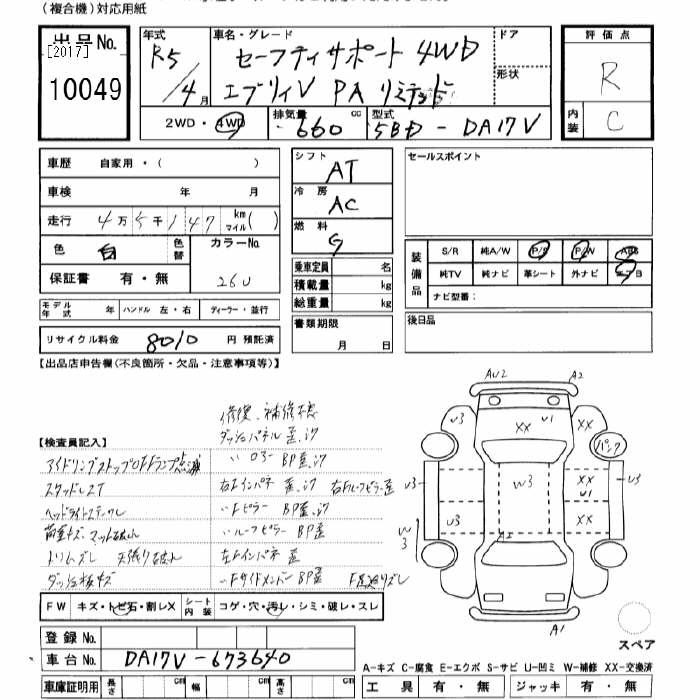 (複合機)対応用紙
出品No. [2017] 10049
年式 R5/4月
車名・グレード セーフティサポート 4WD
エブリィV PA リミテッド
ドア
形状
評価点 R
内装 C
2WD・4WD 排気量 660 cc 型式 5BD-DA17V
車歴 自家用・( )
車検 年 月
走行 4万5千147 km マイル( )
色 白 色替 カラーNo. 26U
保証書 有・無
モデル年式 年 ハンドル 左・右 ディーラー・並行
リサイクル料金 8010 円 預託済
シフト AT
冷房 AC
燃料 G
乗車定員 名
積載量 kg
総重量 kg
書類期限 月 日
セールスポイント
装備品 S/R 純A/W P/S P/W ABS
純TV 純ナビ 革シート 外ナビ エアB
ナビ型番:
後日品
【出品店申告欄(不良箇所・欠品・注意事項等)】
修復、補修歴
ダッシュパネル歪、汚
【検査員記入】
アイドリングストップOFFランプ点滅
〃 ロアー BP歪、汚
スタッドレスT
右Fインパネ 歪、汚 右Fルーフピラー歪
ヘッドライトステークレ
〃Fピラー BP歪、汚
荷室キズ マット破れ
〃ルーフピラー BP歪
トリムズレ 天張り破れ
左Fインパネ 歪
ダッシュ板キズ
〃Fサイドメンバー BP歪
FW キズ・トビ石・割レX シート内装 コゲ・穴・汚レ・シミ・破レ・スレ
登録No.
車台No. DA17V-673640
車庫証明用 長さ cm 幅 cm 高さ cm
AU2 A2
U3 XX U1 XX
パンク
U3 W3 XX U1 U3
W3 U3 A2 XX
A1
スペア
A-キズ C-腐食 E-エクボ S-サビ U-凹ミ W-補修 XX-交換済
工具 有・無 ジャッキ 有・無